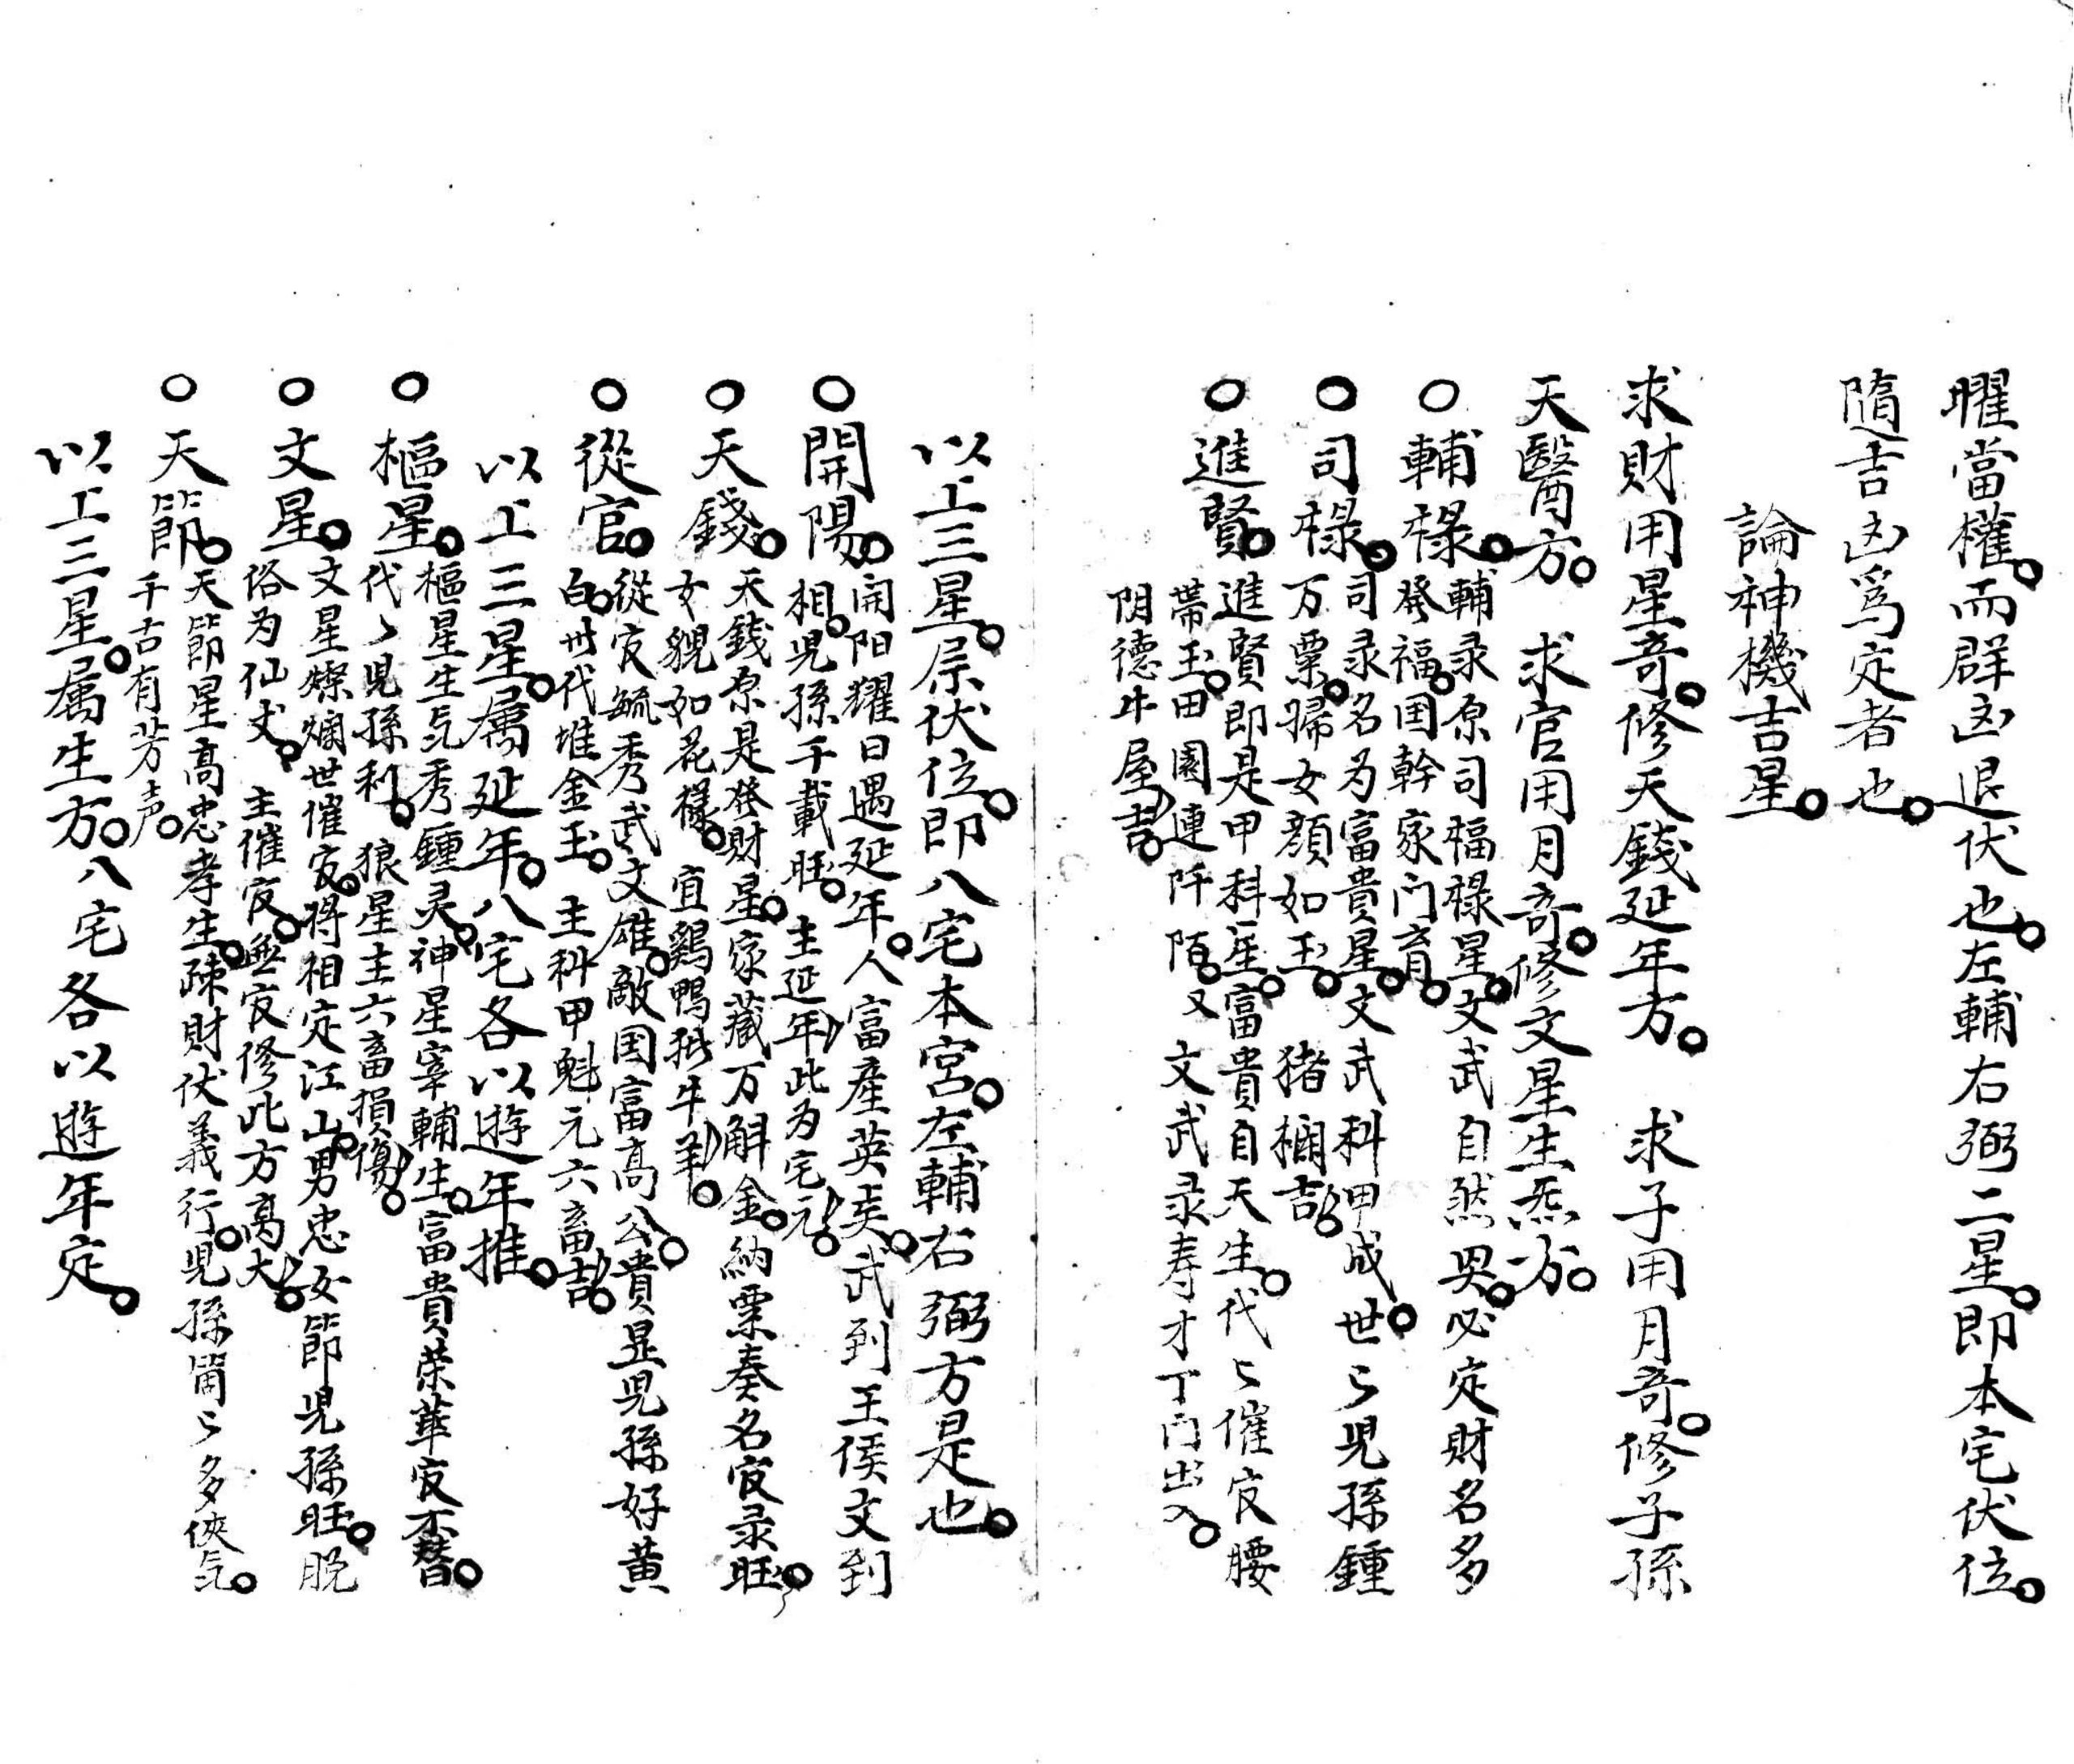 曜當權。而群凶退伏也。左輔右弼二星。即本宅伏位。
隨吉凶爲定者也。
論神機吉星。
求財用星奇。修天錢延年方。 求子用月奇。修子孫
天醫方。 求官用月奇。修文星生炁方。
○輔祿。輔录原司福祿星。文武自然畀。必定財名多
發福。国幹家门育。
○司祿。司录名为富貴星。文武科甲成。世〻児孫鍾
万粟。歸女顔如玉。 猪欄吉。
○進賢。進賢即是甲科星。富貴自天生。代〻催官腰
帶玉。田園連阡陌。又 文武录寿才丁门出入。
阴德牛屋吉。
以上三星。屬伏位。即八宅本宮。左輔右弼方是也。
○開陽。開阳耀日遇延年。人富産英𡗝。武到王侯文到
相。児孫千載旺。 主延年。此为宅元。
○天錢。天錢原是發財星。家藏万斛金。納粟奏名官录旺。
女貌如花樣。 宜鷄鴨牛羊。
○從官。從官毓秀武文雄。敵国富高公。貴显児孫好黄
白。世代堆金玉。 主科甲魁元六畜吉。
以上三星。屬延年。八宅各以遊年推。
○樞星。樞星生气秀鍾灵。神星宰輔生。富貴荣華官不替。
代〻児孫利。 狼星主六畜損傷。
○文星。文星燦爛世催官。將相定江山。男忠女節児孫旺。脱
俗为仙丈。 主催官。無官修此方高大。
○天節。天節星高忠孝生。疎財伏義行。児孫箇〻多俠气。
千古有芳声。
以上三星。属生方。八宅各以遊年定。